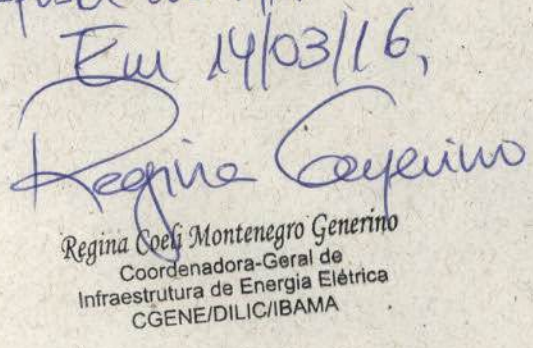 Em 14/03/16,
Regina Generino
Regina Coeli Montenegro Generino
Coordenadora-Geral de
Infraestrutura de Energia Elétrica
CGENE/DILIC/IBAMA